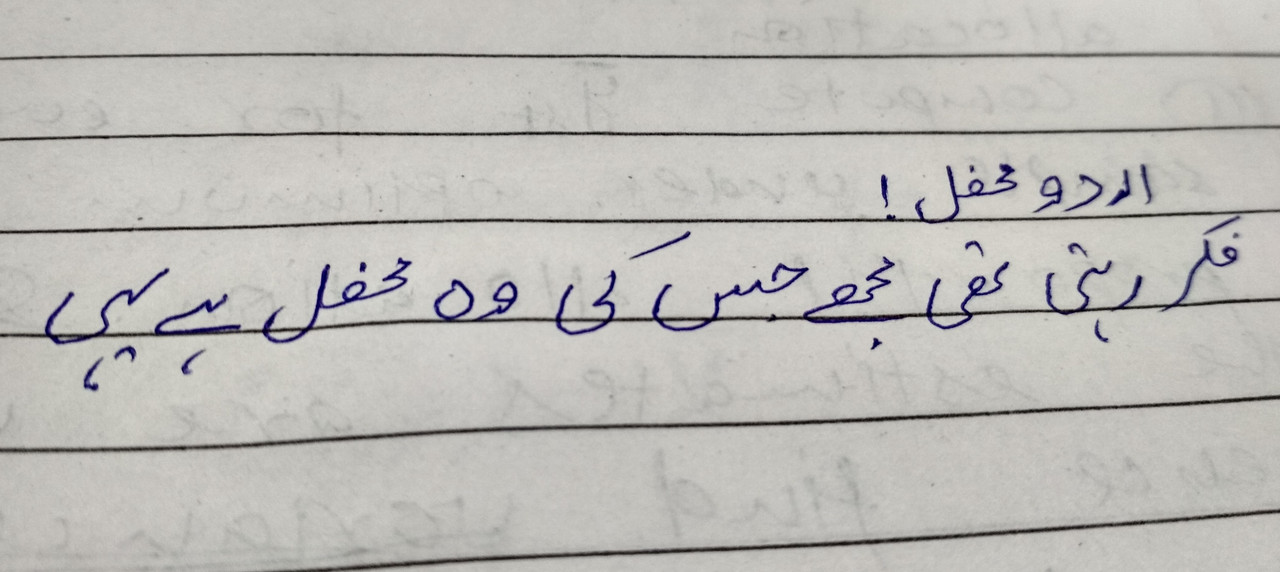 اردو محفل !
فکر رہتی تھی مجھے جس کی وہ محفل ہے یہی